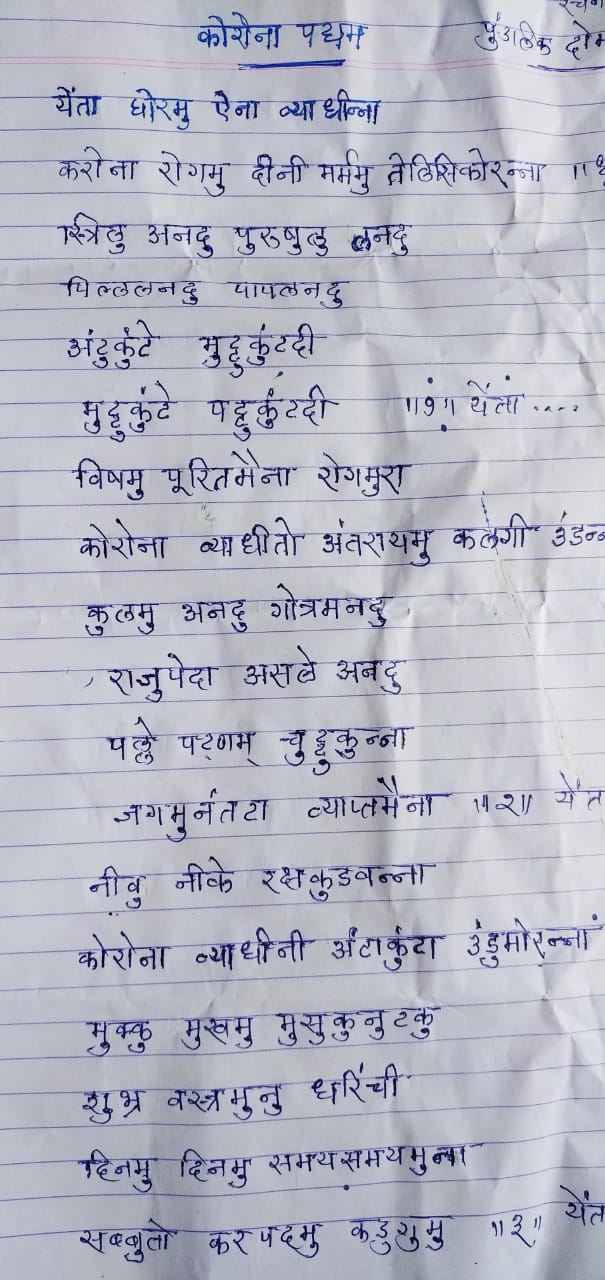 कोरोना पद्यम पुंडलिक
येंता घोरमु ऐना व्याधीन्ना
करोना रोगमु दीनी मर्ममु तेलिसिकोरन्ना ॥
स्त्रिलु अनदु पुरुषुलु लनदु
पिल्ललनदु पापलनदु
अंटुकुंटे मुट्टुकुंटदी
मुट्टुकुंटे पट्टुकुंटदी ॥१॥ येंतां ....
विषमु पूरितमैना रोगमुरा
कोरोना व्याधीतो अंतरायमु कलेगी उंडन्न
कुलमु अनदु गोत्रमनदु
राजुपेदा असले अनदु
पल्ले पट्णम् चुट्टुकुन्ना
जगमुनंतटा व्याप्तमैना ॥२॥ येंत
नीवु नीके रक्षकुडवन्ना
कोरोना व्याधीनी अंटाकुंटा उंडुमोरन्नां
मुक्कु मुखमु मुसुकुनुटकु
शुभ्र वस्त्रमुनु धरिंची
दिनमु दिनमु समयसमयमुना
सब्बुतो करपदमु कडुगुमु ॥३॥ येंत